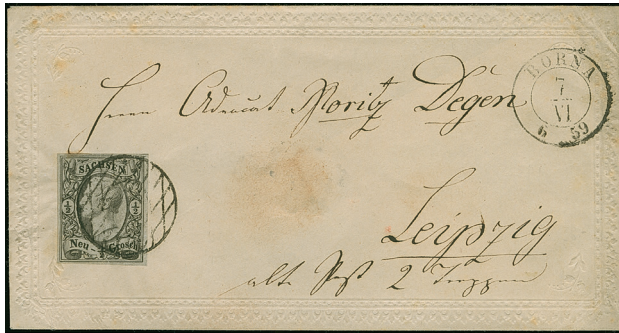 BORNA
7
VI
6 59
Herrn Advocat Moritz Degen
SACHSEN
½ ½
Neu- Grosch
Leipzig
alte Post 2 Treppen